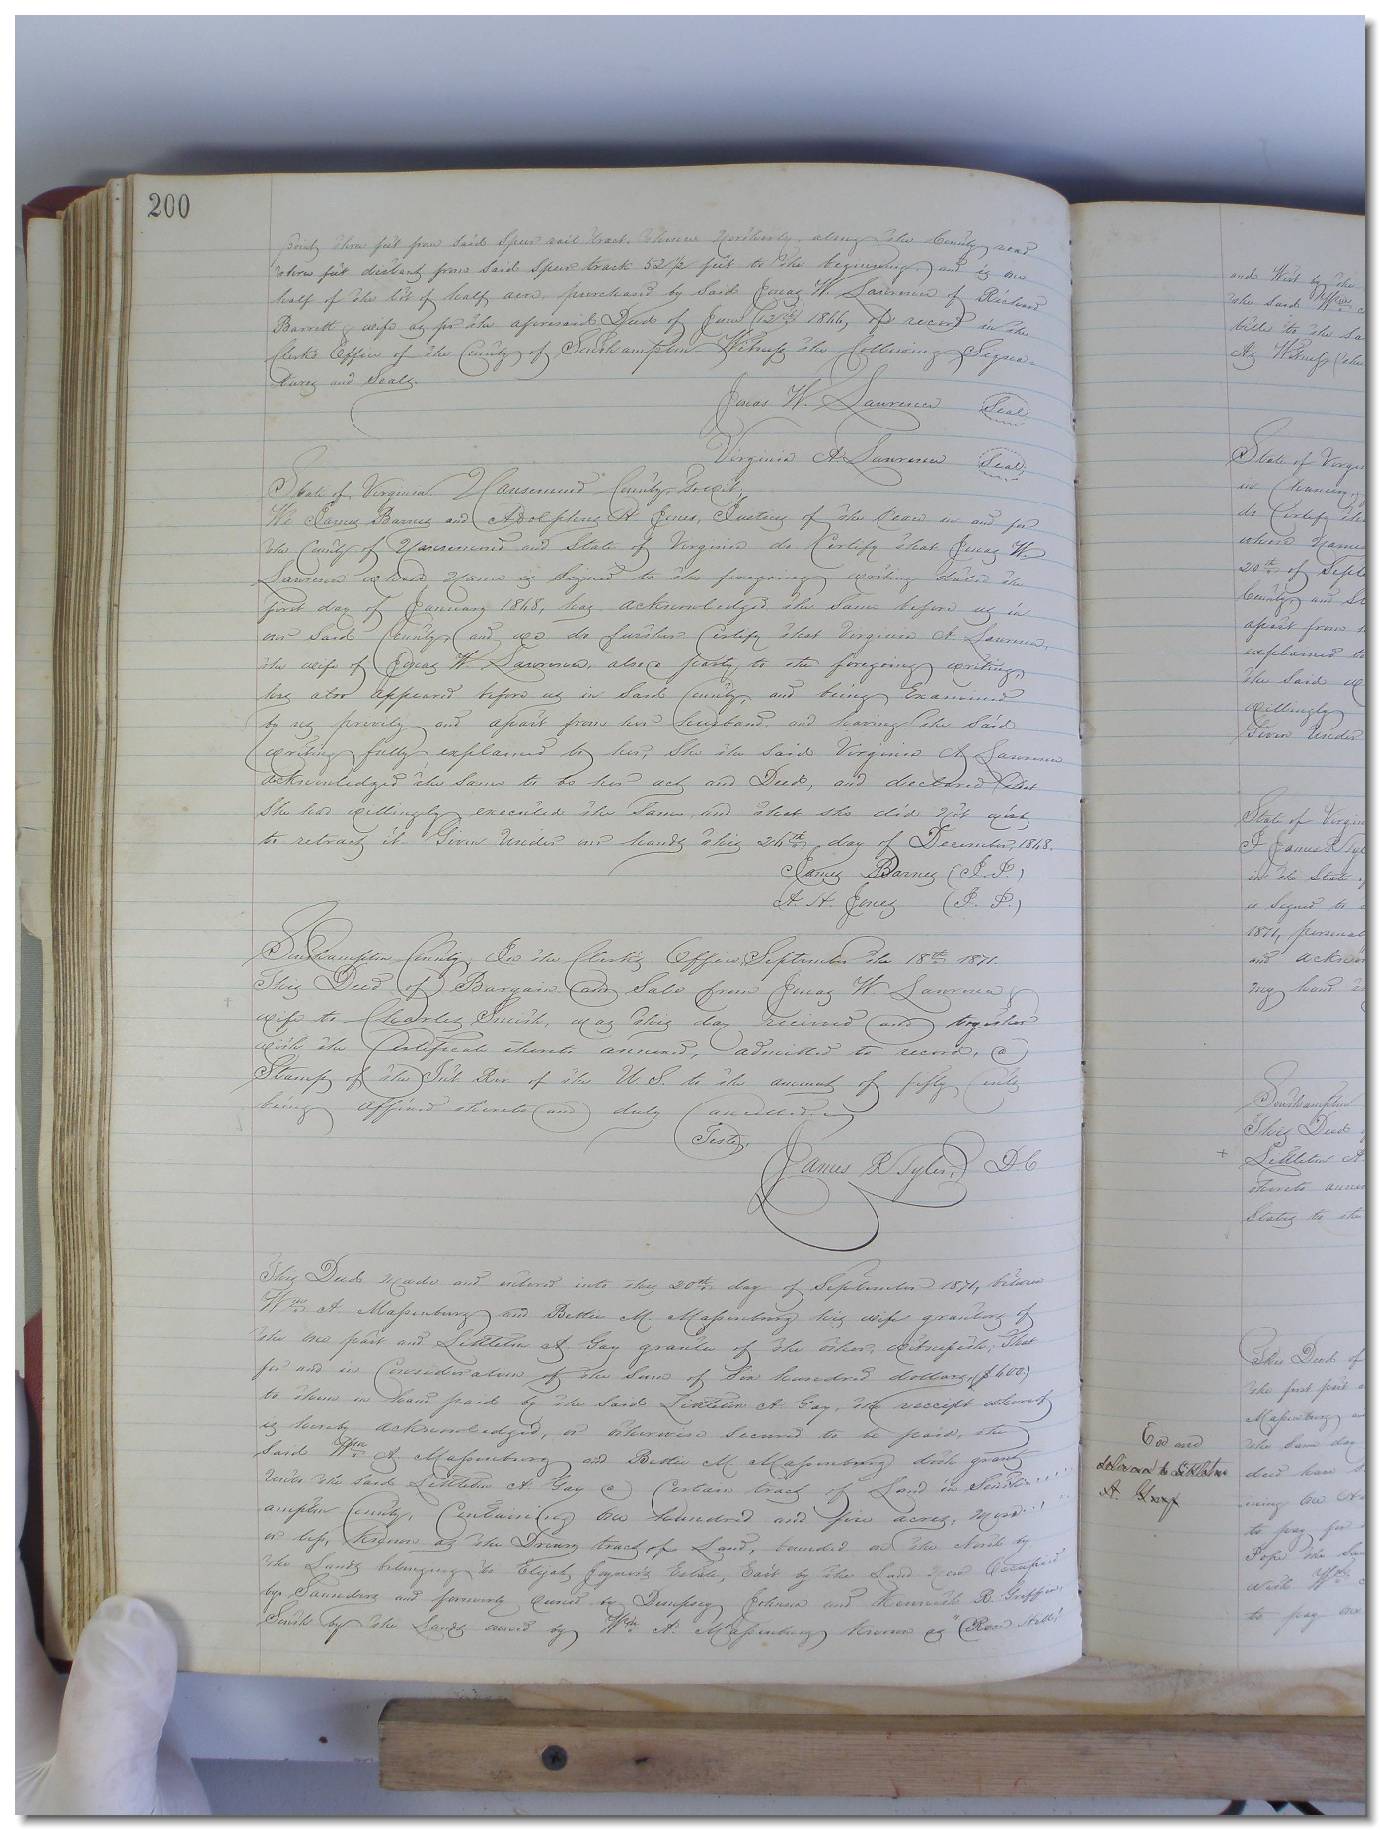 200
point, three feet from said Spur rail track, thence Northerly, along the County road
three feet distant from said Spur track 52 1/2 feet to the beginning, and is one
half of the lot of half acre, purchased by said Jonas W. Lawrence of Richard
Barrett & wife as per the aforesaid Deed of June 12th 1866, of record in the
Clerk's Office of the County of Southampton Witness the following Signa-
tures and Seals.
Jonas W. Lawrence Seal
Virginia A. Lawrence Seal
State of Virginia Nansemond County to wit,
We James Barnes and Adolphus A. Jones, Justices of the Peace in and for
the County of Nansemond and State of Virginia do Certify that Jonas W.
Lawrence whose name is signed to the foregoing writing dated the
first day of January 1868, has acknowledged the same before us in
our said County, and we do further Certify that Virginia A. Lawrence,
the wife of Jonas W. Lawrence, also a party to the foregoing writing,
has also appeared before us in said County, and being Examined
by us privily and apart from her husband, and having the said
writing fully explained to her, She the said Virginia A. Lawrence
acknowledged the same to be her act and Deed, and declared that
She had willingly executed the same, and that she did not wish
to retract it. Given under our hands this 26th day of December, 1868.
James Barnes (J.P.)
A. A. Jones (J. P.)
Southampton County, In the Clerk's Office September the 18th 1871.
This Deed of Bargain and Sale from Jonas W. Lawrence &
wife to Charles Smith, was this day received and together
with the Certificate thereto annexed, admitted to record, a
Stamp of the Int Rev of the U. S. to the amount of fifty Cents
being affixed thereto and duly Cancelled.
Teste,
James R Tyler, D C
This Deed made and entered into this 20th day of September 1871, between
Wm A. Massenburg and Bettie M. Massenburg his wife grantors of
the one part and Littleton A Gay grantee of the other, witnesseth, That
for and in Consideration of the Sum of Six hundred dollars, ($600,)
to them in hand paid by the said Littleton A. Gay, the receipt whereof
is hereby acknowledged, or otherwise secured to be paid, the
Said Wm A. Massenburg and Bettie M. Massenburg doth grant
unto the said Littleton A. Gay a Certain tract of Land in South-
ampton County, Containing One hundred and five acres, more
or less, known as the Drewry tract of Land, bounded on the North by
the Lands belonging to Elijah Joyner's Estate, East by the Land now Occupied
by Saunders and formerly owned by Dempsey Johnson and Kenneth B. Griffin,
South by the Lands owned by Wm A. Massenburg known as "Rose Hill"
and West by the
the said Wm
title to the Sa
As Witness the
State of Virgin
in Chancery,
do Certify that
whose names
20th of Septe
County, and St
apart from
explained to
the said w
willingly
Given Under
State of Virgin
I James R Tyl
in the State
is Signed to
1871, personal
and acknow
my hand
Southampton
This Deed
Littleton A
thereto annex
States to the
This Deed of
the first part
Massenburg an
the same day
deed have
ining One
to pay for
Pope the Sa
with Wm
to pay one
Exd and
delivered to Littleton
A. Gay